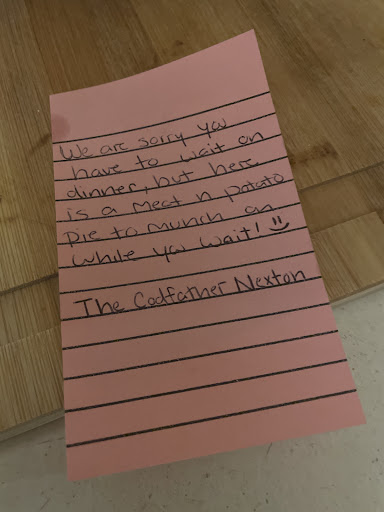 We are sorry you
have to wait on
dinner, but here
is a meat n potato
pie to munch on
while you wait! :)
The Codfather Nexton